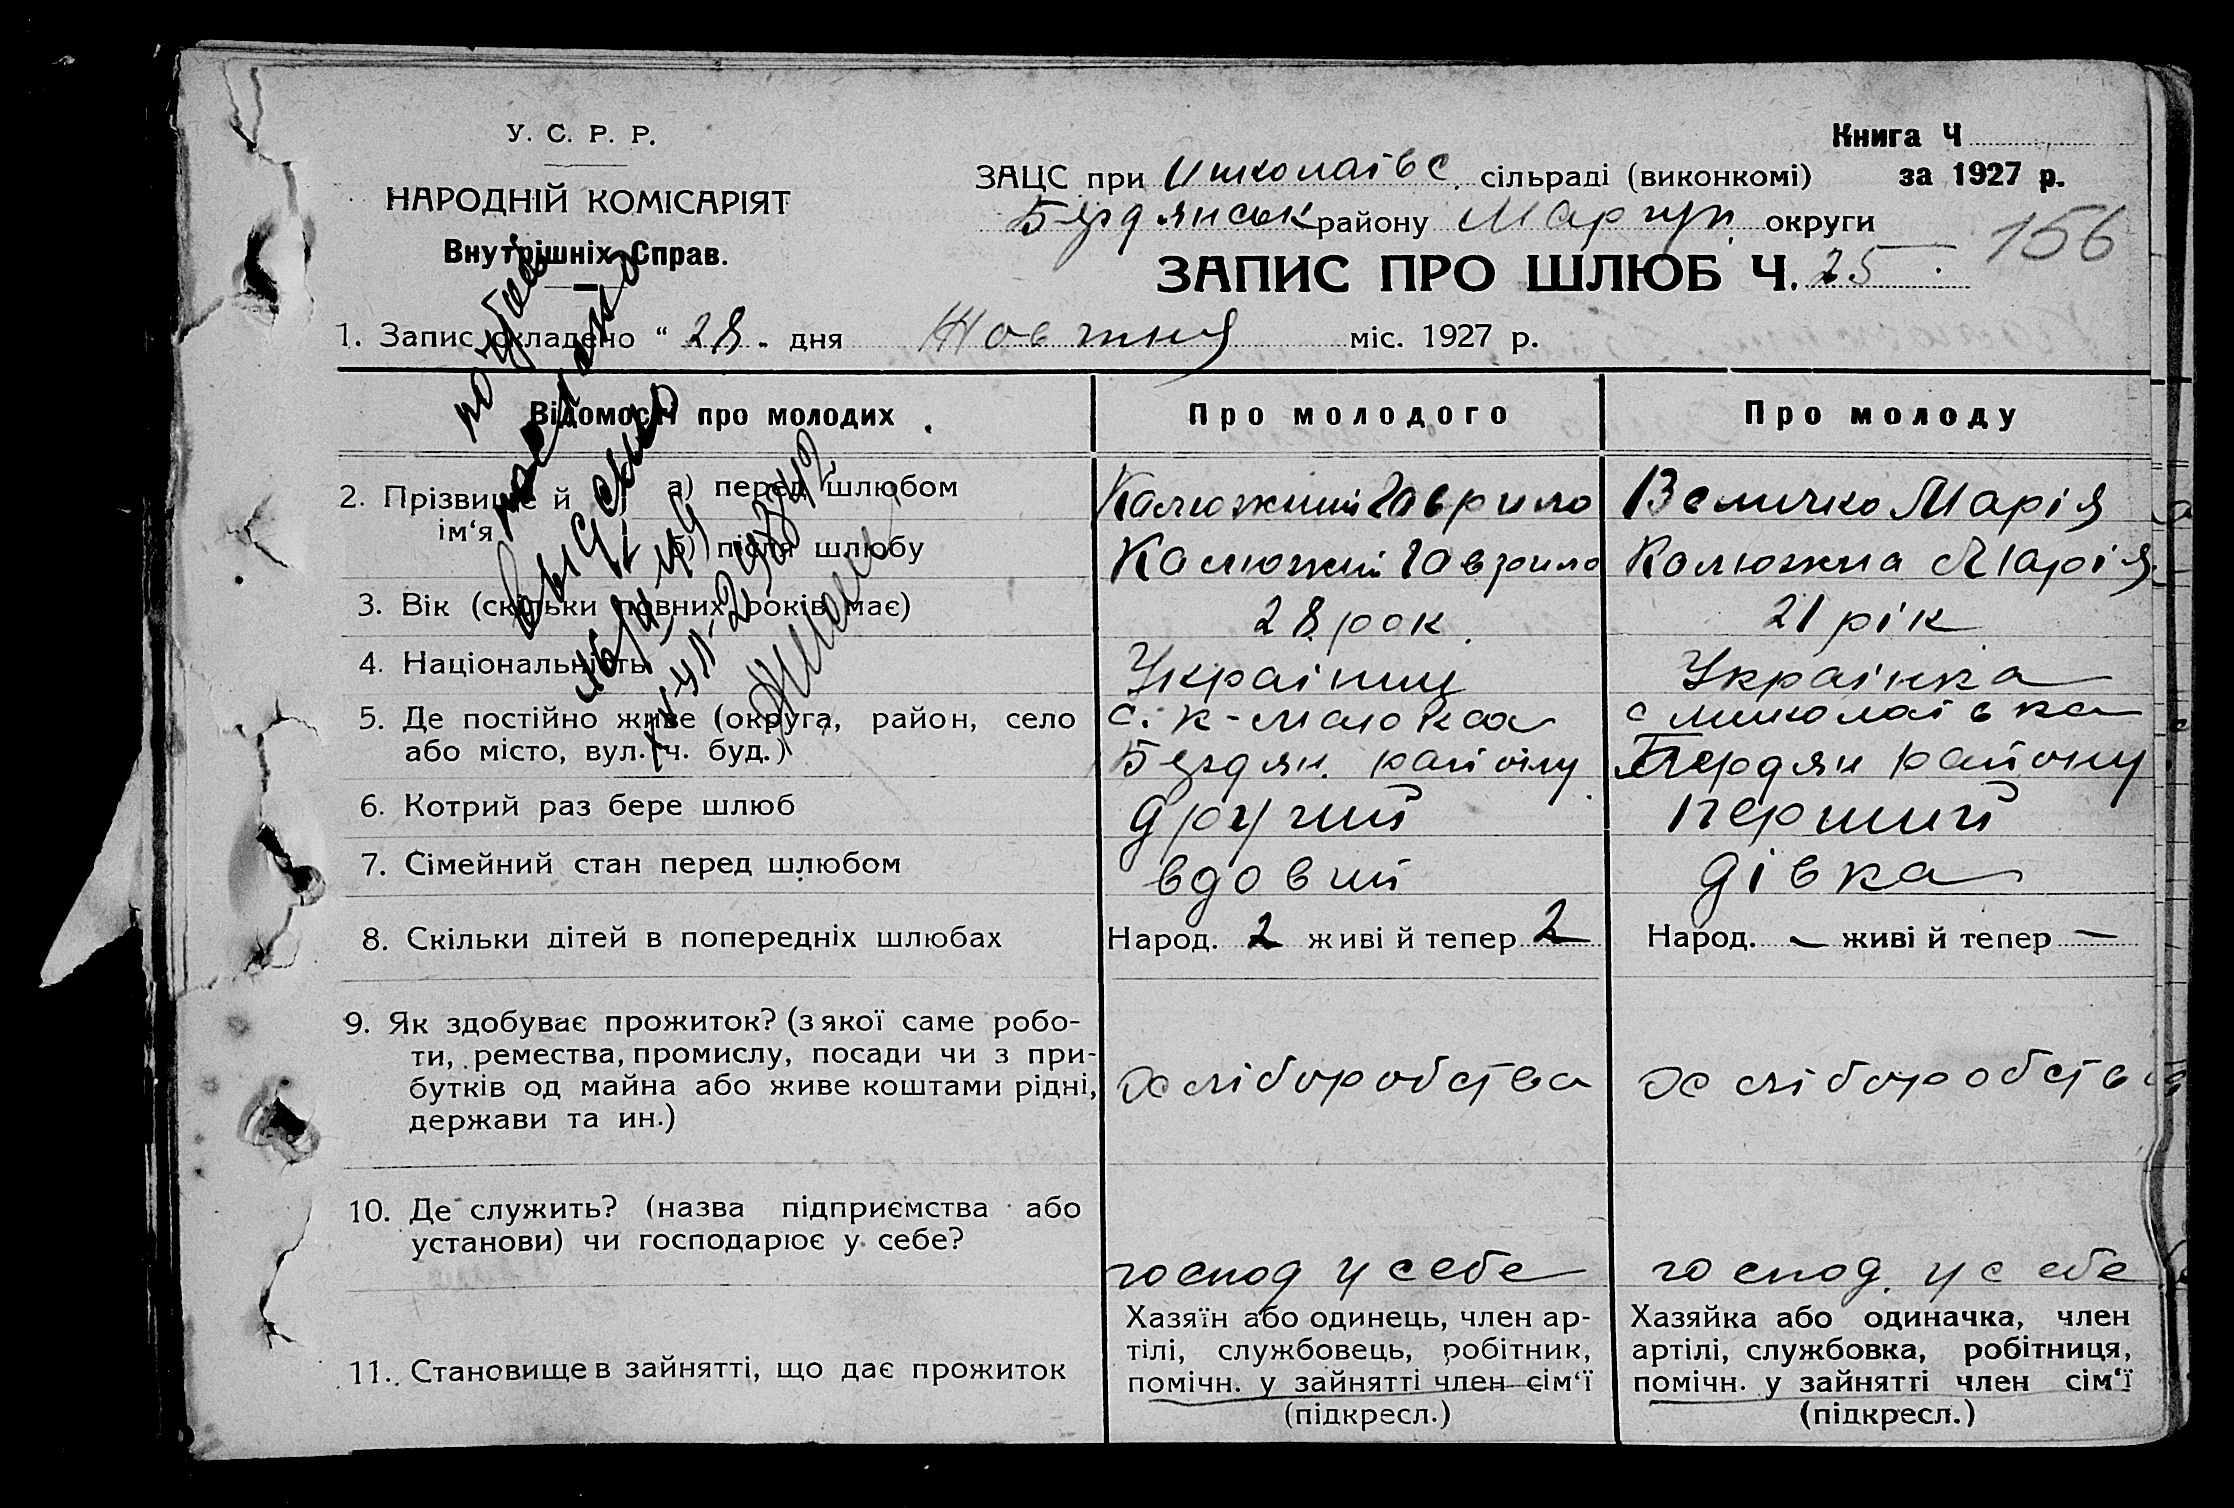 У. С. Р. Р.
НАРОДНІЙ КОМІСАРІЯТ
Внутрішніх Справ.
Книга Ч
за 1927 р.
ЗАЦС при Миколаївс. сільраді (виконкомі)
Бердянськ району Маріуп. округи
156
ЗАПИС ПРО ШЛЮБ Ч. 25
1. Запис складено “ 28 дня Жовтня міс. 1927 р.
Відомості про молодих
Про молодого
Про молоду
2. Прізвище й ім‘я
а) перед шлюбом
Калюжний Гаврило
Величко Марія
б) після шлюбу
Калюжний Гаврило
Калюжна Марія
3. Вік (скільки повних років має)
28 рок
21 рік
4. Національність
Українец
Українка
5. Де постійно живе (округа, район, село
або місто, вул. ч. буд.)
Бердян. району
с Миколаївка
Бердян району
6. Котрий раз бере шлюб
другий
перший
7. Сімейний стан перед шлюбом
вдовий
дівка
8. Скільки дітей в попередніх шлюбах
Народ. 2 живі й тепер 2
Народ. – живі й тепер –
9. Як здобуває прожиток? (з якої саме робо-
ти, ремества, промислу, посади чи з при-
бутків од майна або живе коштами рідні,
держави та ин.)
хліборобства
хліборобства
10. Де служить? (назва підприємства або
установи) чи господарює у себе?
господ у себе
господ. у себе
11. Становище в зайнятті, що дає прожиток
Хазяїн або одинець, член ар-
тілі, службовець, робітник,
помічн. у зайнятті член сім‘ї
(підкресл.)
Хазяйка або одиначка, член
артілі, службовка, робітниця,
помічн. у зайнятті член сім‘ї
(підкресл.)